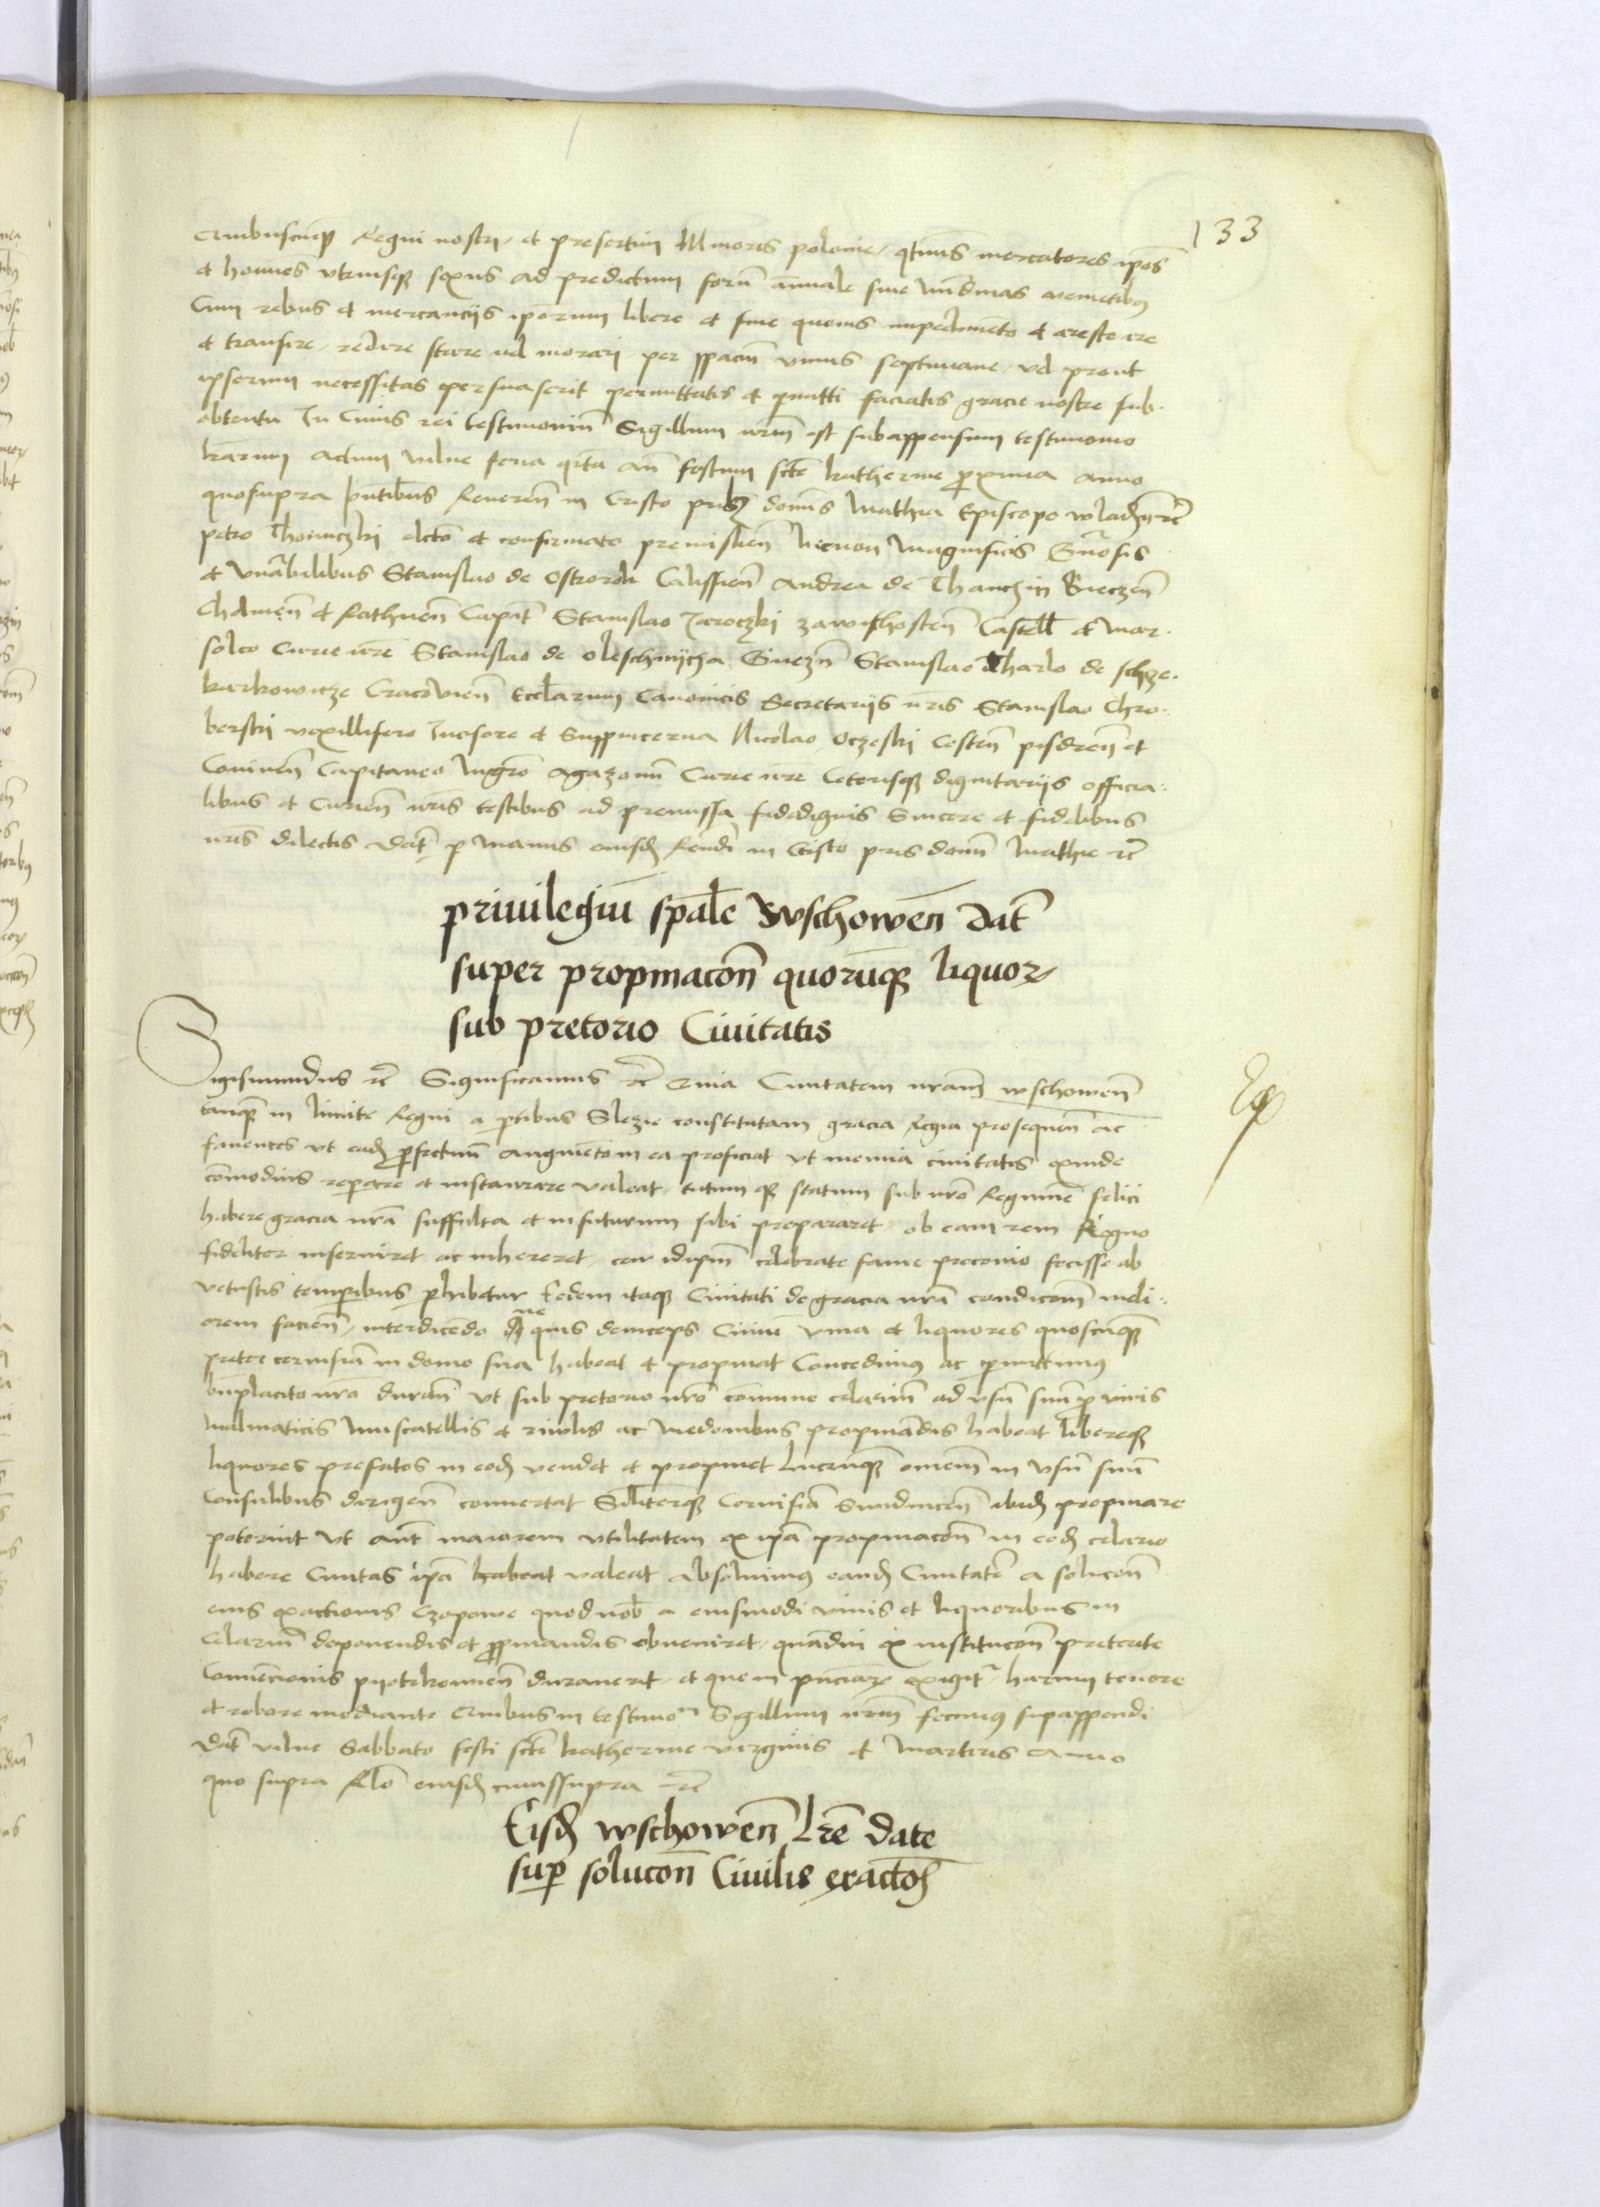 133
quibuscunqꝫ Regni nostri, et presertim Maioris polonie, qtinus mercatores ipos
et homines vtriusqꝫ sexus ad predictum forum annuale sive Nundinas venientibus
Cum rebus et mercanciis ipsorum libere et sine quovis impedimento et aresto ire
et transire, redire stare vel morari per spacium vnius septimane, vel prout
ipsorum necessitas persuaserit permittatis et pmitti faciatis gracie nostre sub
obtentu In Cuius rei testimonium Sigillum nrm est subappensum testimonio
harum Actum Vilne feria qrta an festum scte katherine proxima anno
quosupra pntibus Reveren in Cristo pribus dominis Mathia Episcopo wladislavien
petro Thomiczki electo et confirmato premislien Necnon Magnificis Gnrosis
et Vnrabilibus Stanislao de Ostrorok Calissien Andrea de Thanczin Bieczen
Chelmen et Rathnen Capit Stanislao Jaroczki zawichosten Castell et Mar
salco Curie nre Stanislao de oleschnycza Gnezn Stanislao Tharlo de schze
karkowicze Cracovien Eccliarum Canonicis Secretariis nris Stanislao Chro
berski vexillifero Incisore et Suppincerna Nicolao Oczeski Costen pisdren et
Coninen Capitaneo Mgro agazonum Curie nre Ceterisqꝫ dignitariis officia
libus et Curien nris testibus ad premissa fidedignis Sincere et fidelibus
nris dilectis Dat p Manus eiusd Rendi in Cristo pris domini Mathie etc
priuilegiu spale Wschowen Dat
super propinacon quorucqꝫ liquor
sub pretorio Ciuitatis
Sigismundus etc Significamus etc Quia Ciuitatem nram wschowen
tanqꝫ in limite Regni a ptibus Slezie constitutam gracia Regia prosequen ac
fauentes vt eadem profectuum augmento in ea proficiat vt menia ciuitatis exinde
comodius reparare et instaurare valeat, tutum qꝫ statum sub nro Regimine felici
habere gracia nra suffulta et in futurum sibi prepararet ob eam rem Regno
fideliter inserviret ac inhereret, ceu idipsum celebrate fame preconio fecisse ab
vetustis temporibus phibetur Eedem itaqꝫ Ciuitati de gracia nra condicom meli
orem facien, interdicendo ne quis deinceps Ciuiu vina et liquores quoscunqꝫ
preter cervisiam in domo sua habeat et propinat Concedimus ac pmittimus
bnplacito nro duran vt sub pretorio nro comune celarium ad vsum suum pro vinis
Malmaticis Muscatellis et rivolis ac Medonibus propinandis habeat libereqꝫ
liquores prefatos in eod vendet et propinet Lucrumqꝫ omnem in Vsum suum
Consulibus dirigen convertat Similiterqꝫ Cervisiam Swidnicen ibid propinare
poterint Vt aut maiorem vtilitatem ex ipa propinacon in eod celario
habere Ciuitas ipa habeat valeat Absoluimus eand Ciuitate a solucon
eius exactionis Czopowe quod nob a eiusmodi vinis et liquoribus in
Celarium deponendis et propinandis obveniret, quamdiu ex institucon preterite
Convencionis pyotrkovien duraverit, et que in pnciar exigit, harum tenore
et robore mediante Quibus in testimo Sigillum nrm fecimus supappendi
Dat vilne Sabbato festi scte katherine virginis et Marteris Anno
quo supra Relo eiusd cuiussupra etc
Eisd wschowen Lre date
sup solucon Ciuilis exacton